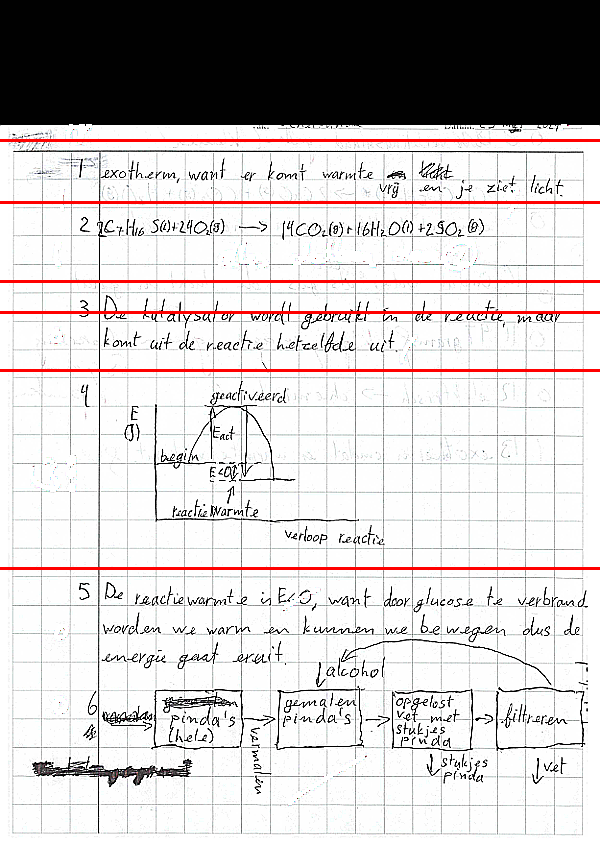 1 exotherm, want er komt warmte
vrij en je ziet licht.
2 2C₇H₁₆S(l)+24O₂(g) —> 14CO₂(g)+16H₂O(l)+2SO₂(g)
3 De katalysator wordt gebruikt in de reactie, maar
komt uit de reactie hetzelfde uit.
4
geactiveerd
E
(J)
Eact
begin
E<0
reactiewarmte
verloop reactie
5 De reactiewarmte is E<0, want door glucose te verbrand
worden we warm en kunnen we bewegen dus de
energie gaat eruit.
alcohol
6
pinda's
(hele)
vermalen
gemalen
pinda's
opgelost
vet met
stukjes
pinda
filtreren
stukjes
pinda
vet